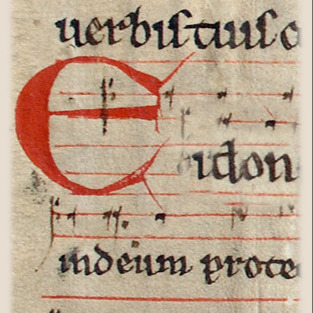 uerbis tuis
E idon
in deum prote